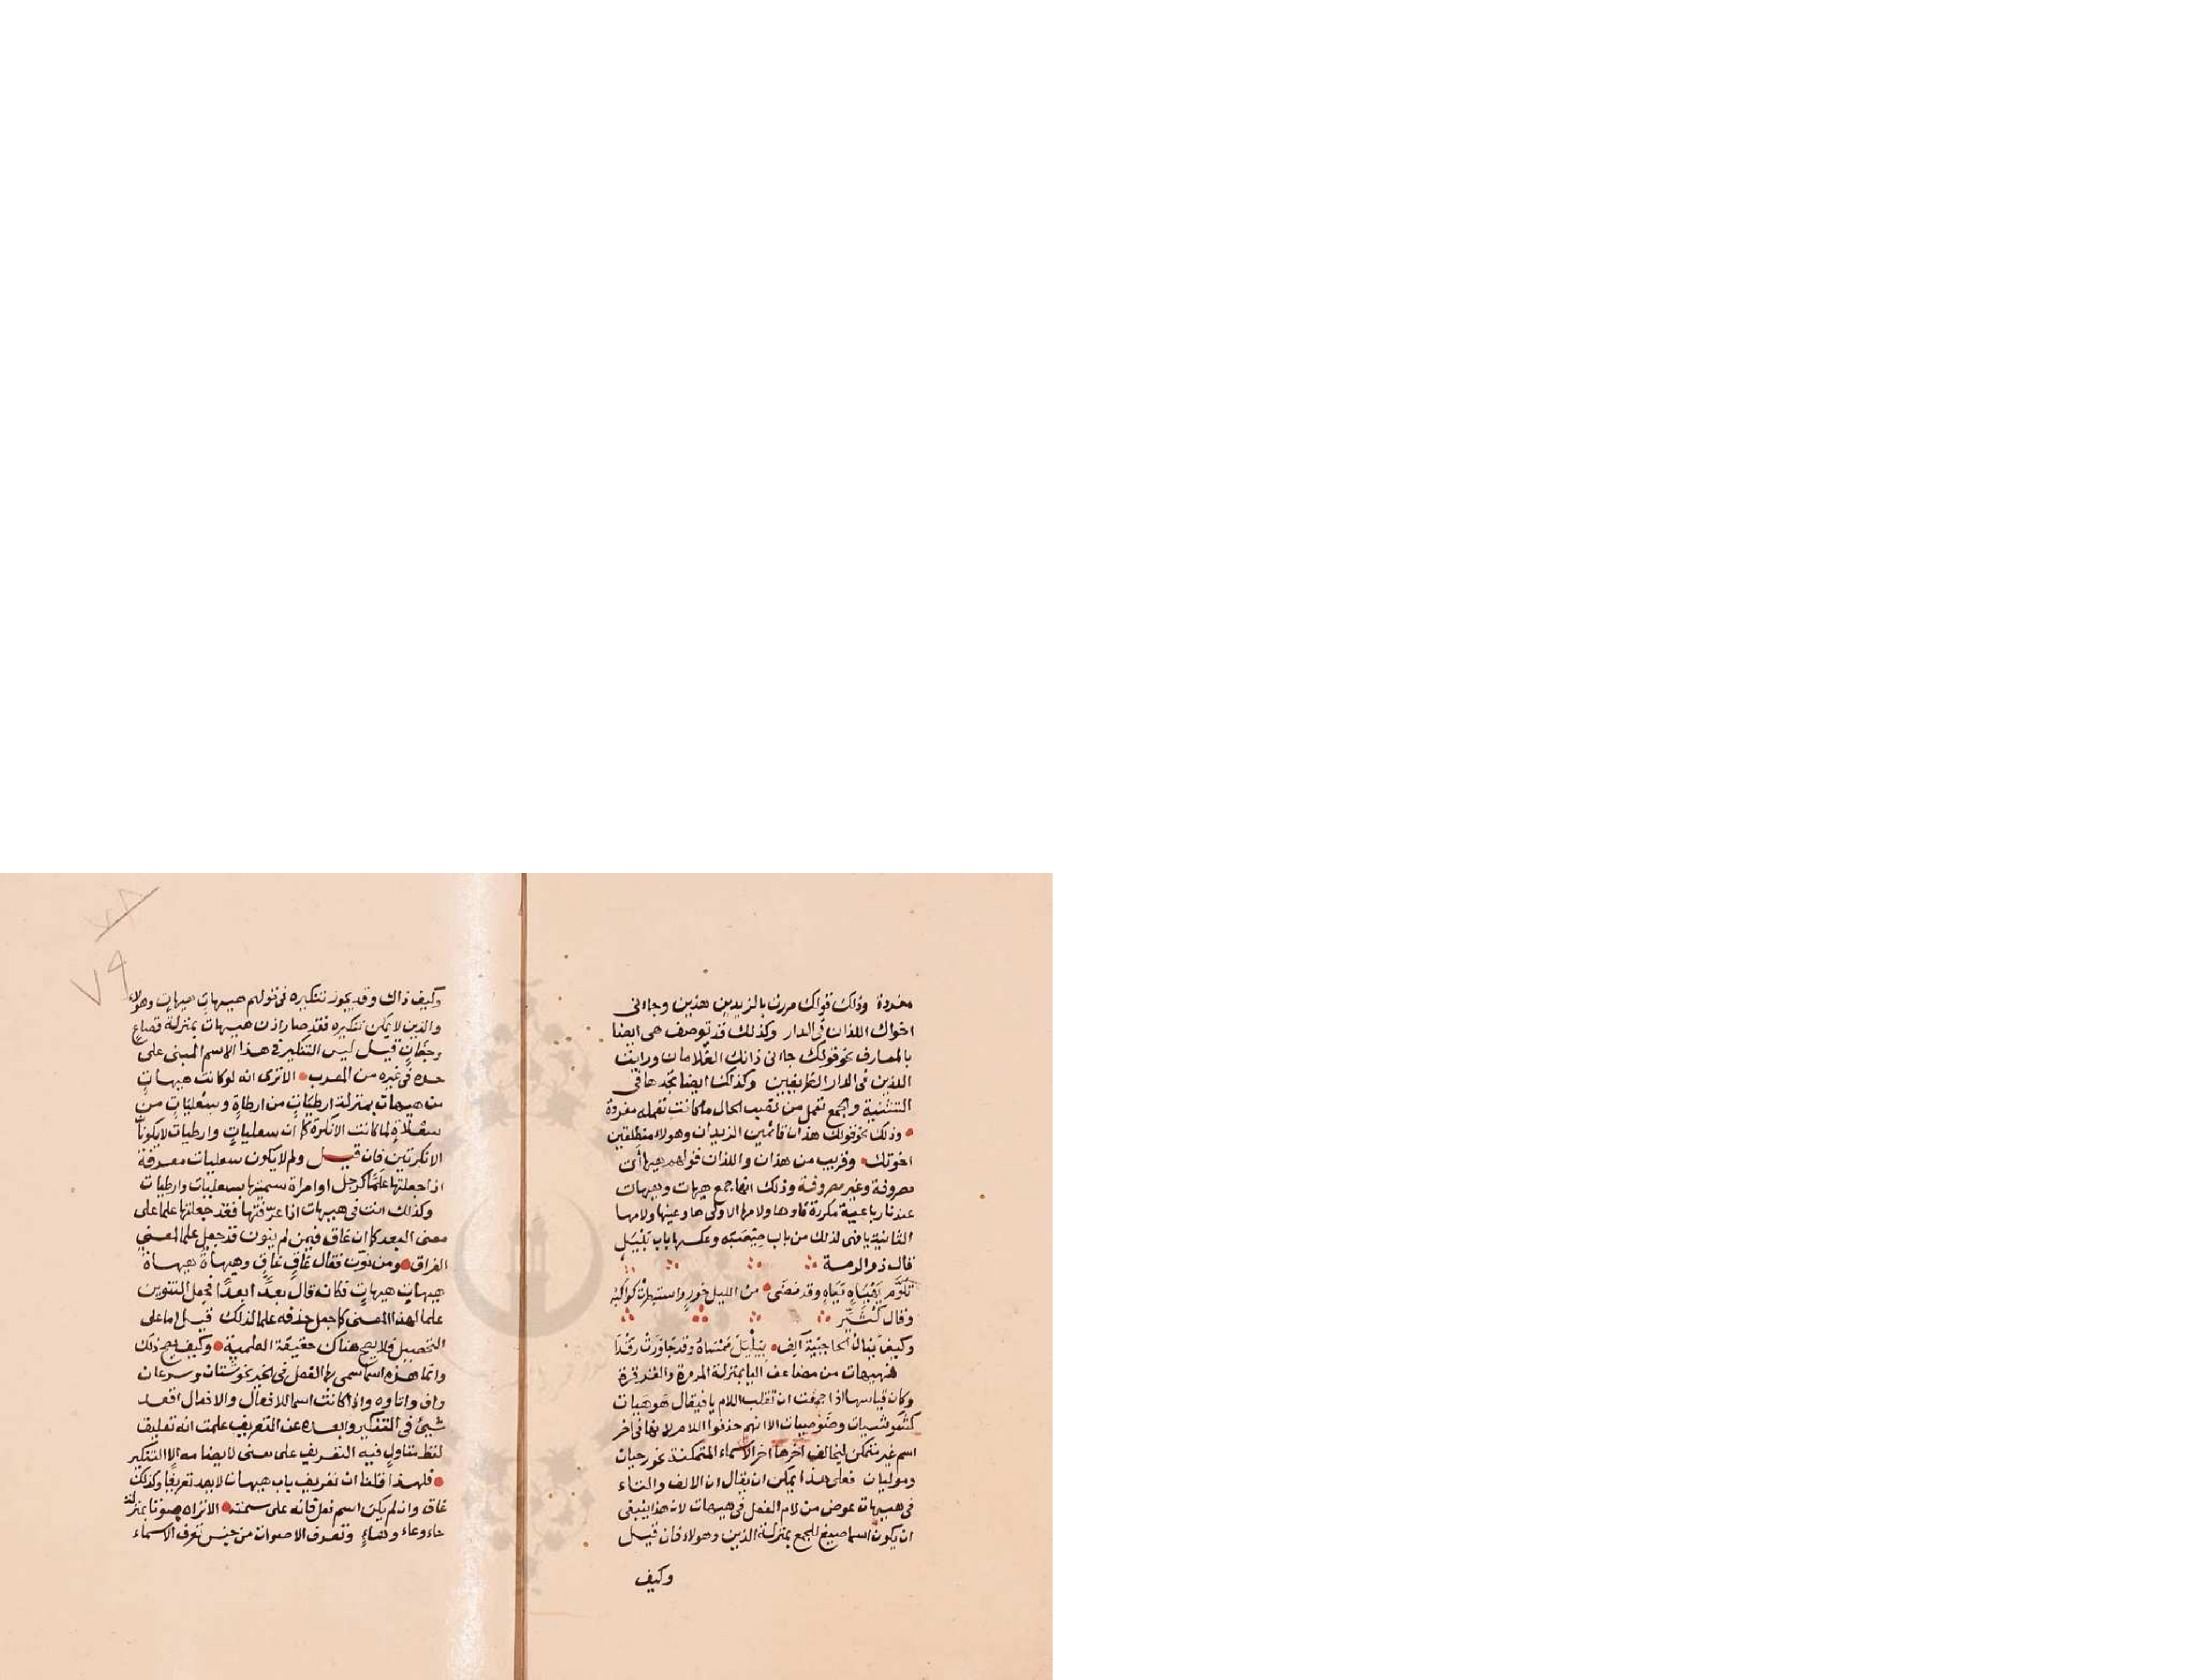 مفردة وذلك قولك مررت بالزيدين هذين وجاانى
اخواك اللذان فى الدار وكذلك قد توصف هى ايضا
بالمعارف نحو قولك جاانى ذانك الغلامان ورايت
اللذين فى الدار الظريفين وكذلك ايضا تجدها فى
التثنية والجمع تعمل من نصب الحال ما كانت تعمله مفردة
وذلك نحو قولك هذان قائمين الزيدان وهولاء منطلقين
اخوتك وقريب من هذان واللذان قولهم هيهات
مصروفة وغير مصروفة وذلك انها جمع هيهات وهيهات
عندنا رباعية مكررة فاوها ولامها الاولى ها وعينها ولامها
الثانية يا فهى لذلك من باب صيصية وعكسها باب يَلْيَل
قال ذو الرمة
تلوّم يَهْيَاهٍ بيَاهٍ وقد مضَى من الليل جوز واسبطرت كواكبه
وقال كُثَيِّر
وكيف ينال الحاجبية آلِف بيَلْيَلَ مُمْسَاهُ وقد جاوَزَتْ رقْدَا
فهيهات من مضاعف اليا بمنزلة المرمرة والقرقرة
وكان قياسها اذا جمعت ان تقلب اللام يا فيقال هَوْهَيات
كشَوشَيات وضَوضَيات الا انهم حذفوا اللام لانها فى اخر
اسم غير متمكن ليخالف آخرها اخر الاسماء المتمكنة نحو رحيات
وموليان فعلى هذا يمكن ان يقال ان الالف والتاء
فى هيهات عوض من لام الفعل فى هيهات لان هذا ينبغى
ان يكون اسما صيغ للجمع بمنزلة الذين وهولاء فان قيل
وكيف
٧٩
وكيف ذاك وقد يجوز تنكيره فى قولهم هيهاتٍ هيهاتٍ وهولاء
والذين لا يمكن تنكيره فقد صار اذن هيهات بمنزلة قصاعٍ
وجفَانٍ قيل ليس التنكير فى هذا الاسم المبنى على
حده فى غيره من المعرب الا ترى انه لو كانت هيهاتٍ
من هيهات بمنزلة ارطيَاتٍ من ارطاةٍ وسِعْليَاتٍ من
سعْلَاةٍ لما كانت الا نكرة كما أن سعلياتٍ وارطيات لا يكونان
الا نكرتين فان قيل ولم لا يكون سعليات معرفة
اذا جعلتها عَلَمًا كرجل او امراة سميتها بسعليات وارطيات
وكذلك انت فى هيهات اذا عرّفتها فقد جعلتها علما على
معنى البعد كما ان غاق فيمن لم ينون قد جعل علما لمعنى
الفراق ومن نوّن فقال غاقٍ غاقٍ وهيهاةً هيهاةً
هيهاتٍ هيهاتٍ فكانه قال بعدًا بعدًا فجعل التنوين
علما لهذا المعنى كما جعل حذفه علما لذلك قيل اما على
التحصيل فلا يصح هناك حقيقة العلمية وكيف يصح ذلك
وانما هذه اسما سمى بها الفعل فى الخبر نحو شتان وسرعان
واف واتاوه واذا كانت اسما للافعال والافعال اقعد
شيئ فى التنكير وابعده عن التعريف علمت انه تعليق
لفظ متاول فيه التعريف على معنى لا يضامه الا التنكير
فلهذا قلنا ان تعريف باب هيهات لا يعد تعريفا وكذلك
غاق وان لم يكن اسم فعل فانه على سمته الا تراه صوتا بمنزلة
حاء وعاء وهاءٍ وتعرف الاصوات من جنس تعرف الاسماء